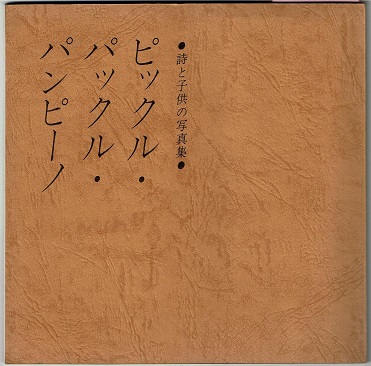 ●詩と子供の写真集●
ピックル・
パックル・
パンピーノ